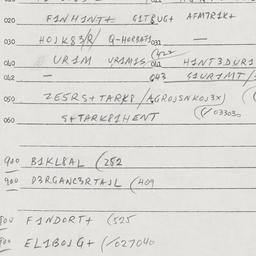 020 F1NH1NT+ G1TBUG+ AFM7R1K+
030 HOJK83/R/ Q-HORRAT1 031 —
040 UR1M UR1M1S/ 041 H1NT3DUR1
042 — 043 S1UR1MT/
050 ZE5RS+TARK8 /AGROJSNKOJ3X)
060 S+TARK81HENT (/033030
900 B1KL8AL (252
900 D3RGANC3RTAJL (409
800 F1NDORT+ (525
800 EL1BOJG+ (/027040